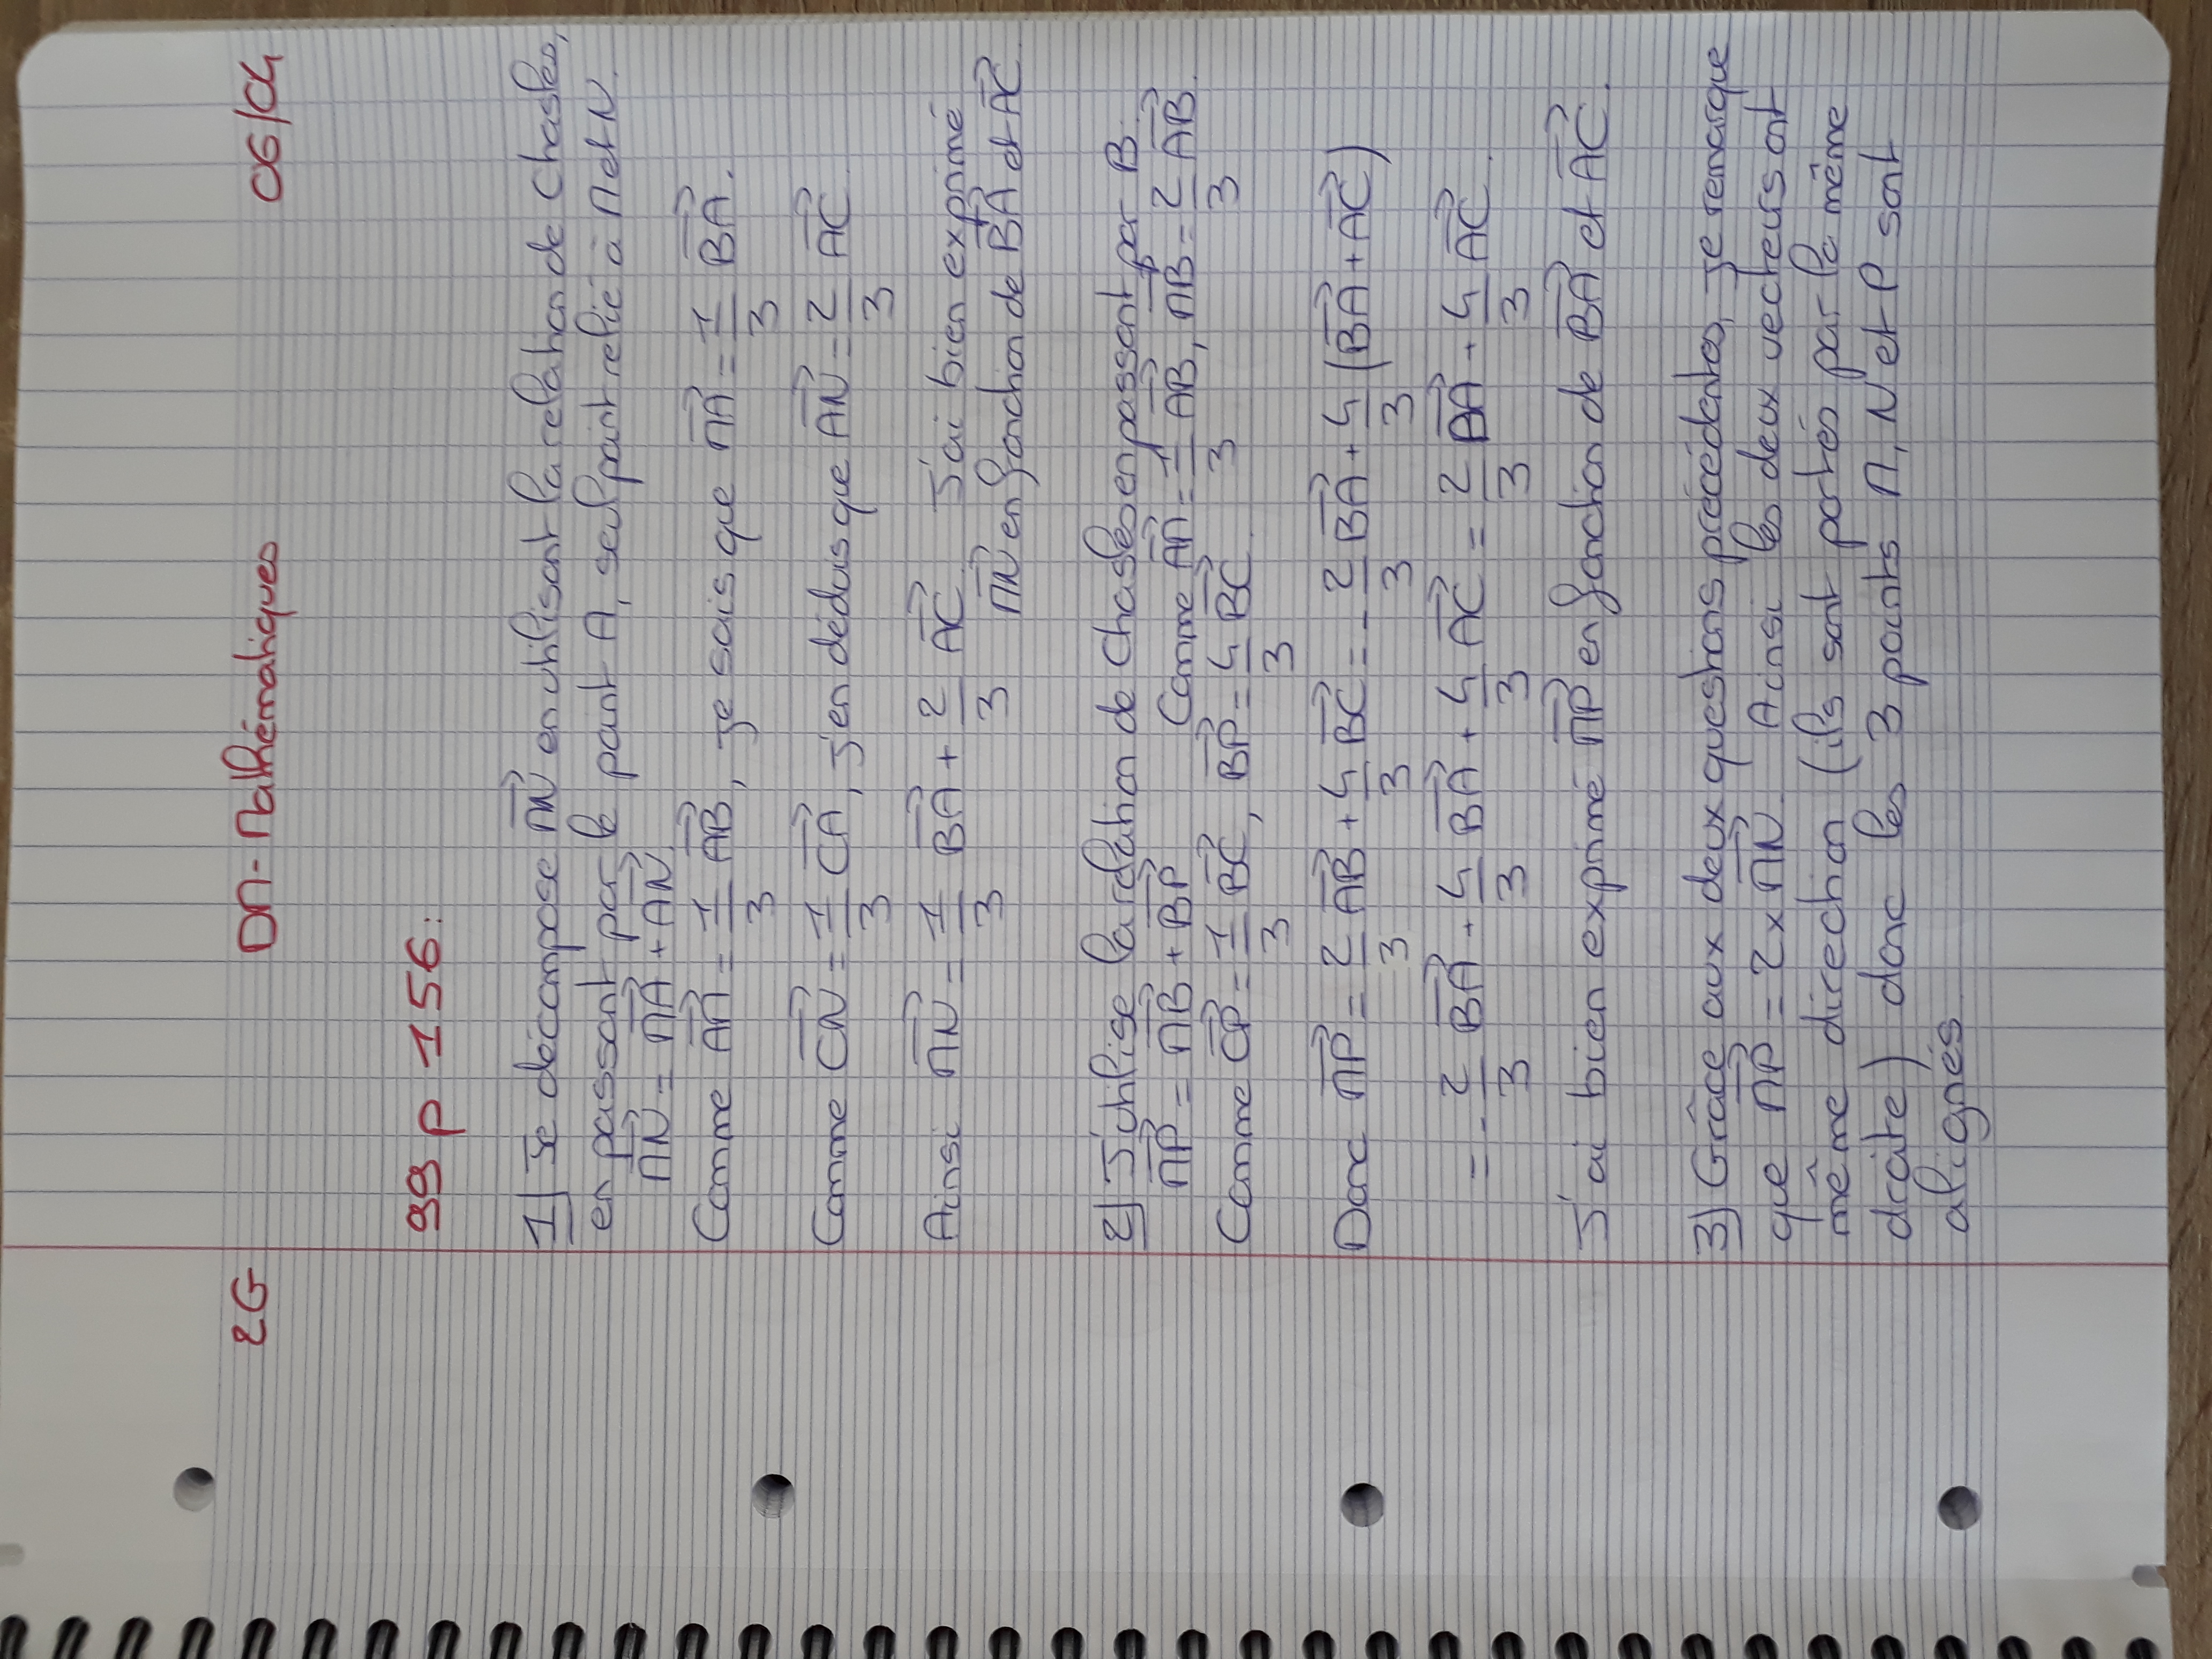 2G DM - Mathématiques 06/04
99 p 156 :
1) Je décompose MN en utilisant la relation de Chasles,
en passant par le point A, seul point relié à M et N.
MN = MA + AN.
Comme AM = 1/3 AB, je sais que MA = 1/3 BA.
Comme CN = 1/3 CA, j'en déduis que AN = 2/3 AC.
Ainsi MN = 1/3 BA + 2/3 AC. J'ai bien exprimé
MN en fonction de BA et AC.
2) J'utilise la relation de Chasles en passant par B.
MP = MB + BP Comme AM = 1/3 AB, MB = 2/3 AB.
Comme CP = 1/3 BC, BP = 4/3 BC.
Donc MP = 2/3 AB + 4/3 BC = - 2/3 BA + 4/3 (BA + AC)
= - 2/3 BA + 4/3 BA + 4/3 AC = 2/3 BA + 4/3 AC.
J'ai bien exprimé MP en fonction de BA et AC.
3) Grâce aux deux questions précédentes, je remarque
que MP = 2 x MN. Ainsi les deux vecteurs ont
même direction (ils sont portés par la même
droite) donc les 3 points M, N et P sont
alignés